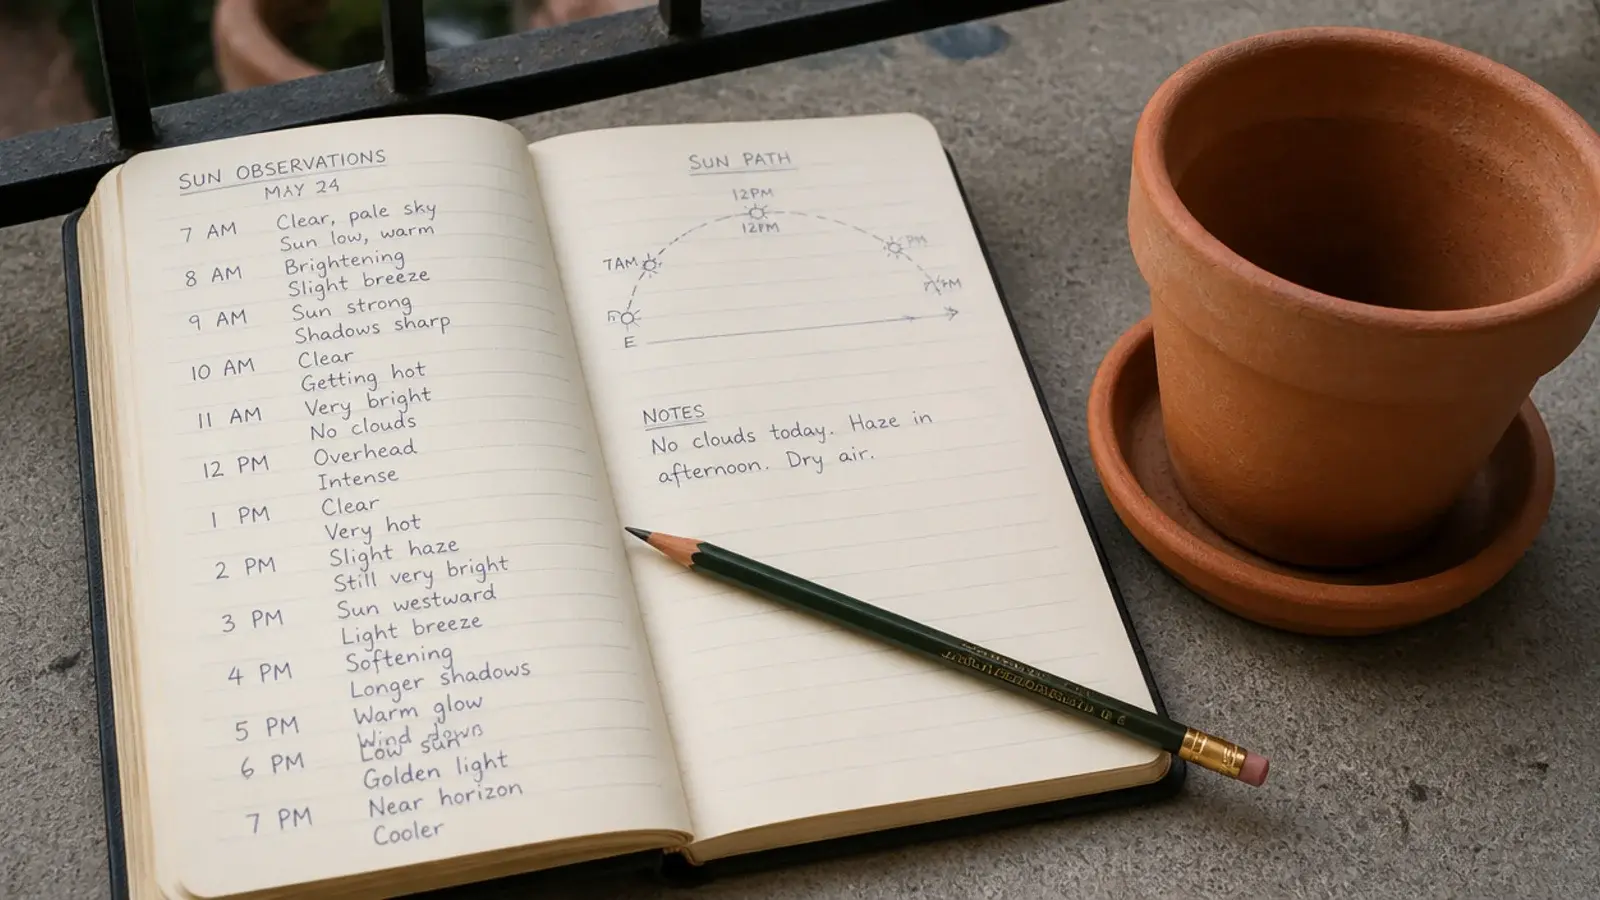 SUN OBSERVATIONS
MAY 24
7 AM Clear, pale sky
Sun low, warm
8 AM Brightening
Slight breeze
9 AM Sun strong
Shadows sharp
10 AM Clear
Getting hot
11 AM Very bright
No clouds
12 PM Overhead
Intense
1 PM Clear
Very hot
2 PM Slight haze
Still very bright
3 PM Sun westward
Light breeze
4 PM Softening
Longer shadows
5 PM Warm glow
Wind down
6 PM Low sun
Golden light
7 PM Near horizon
Cooler
SUN PATH
12PM
12PM
7AM
PM
E
NOTES
No clouds today. Haze in
afternoon. Dry air.